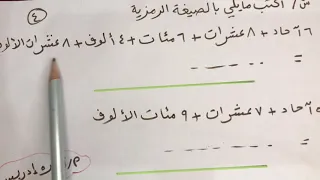 س/ اكتب مايلي بالصيغة الرمزية
٤
٦ آحاد + ٨ عشرات + ٦ مئات + ٤ ألوف + ٨ عشرات الألوف
=
آحاد + ٧ عشرات + ٩ مئات الألوف
=